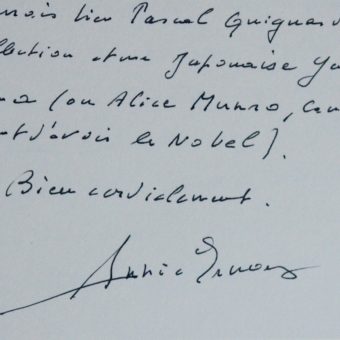 rais bien Pascal Quignard
llection et une Japonaise
(ou Alice Munro,
t d'avoir le Nobel).
Bien cordialement.
Annie Ernaux